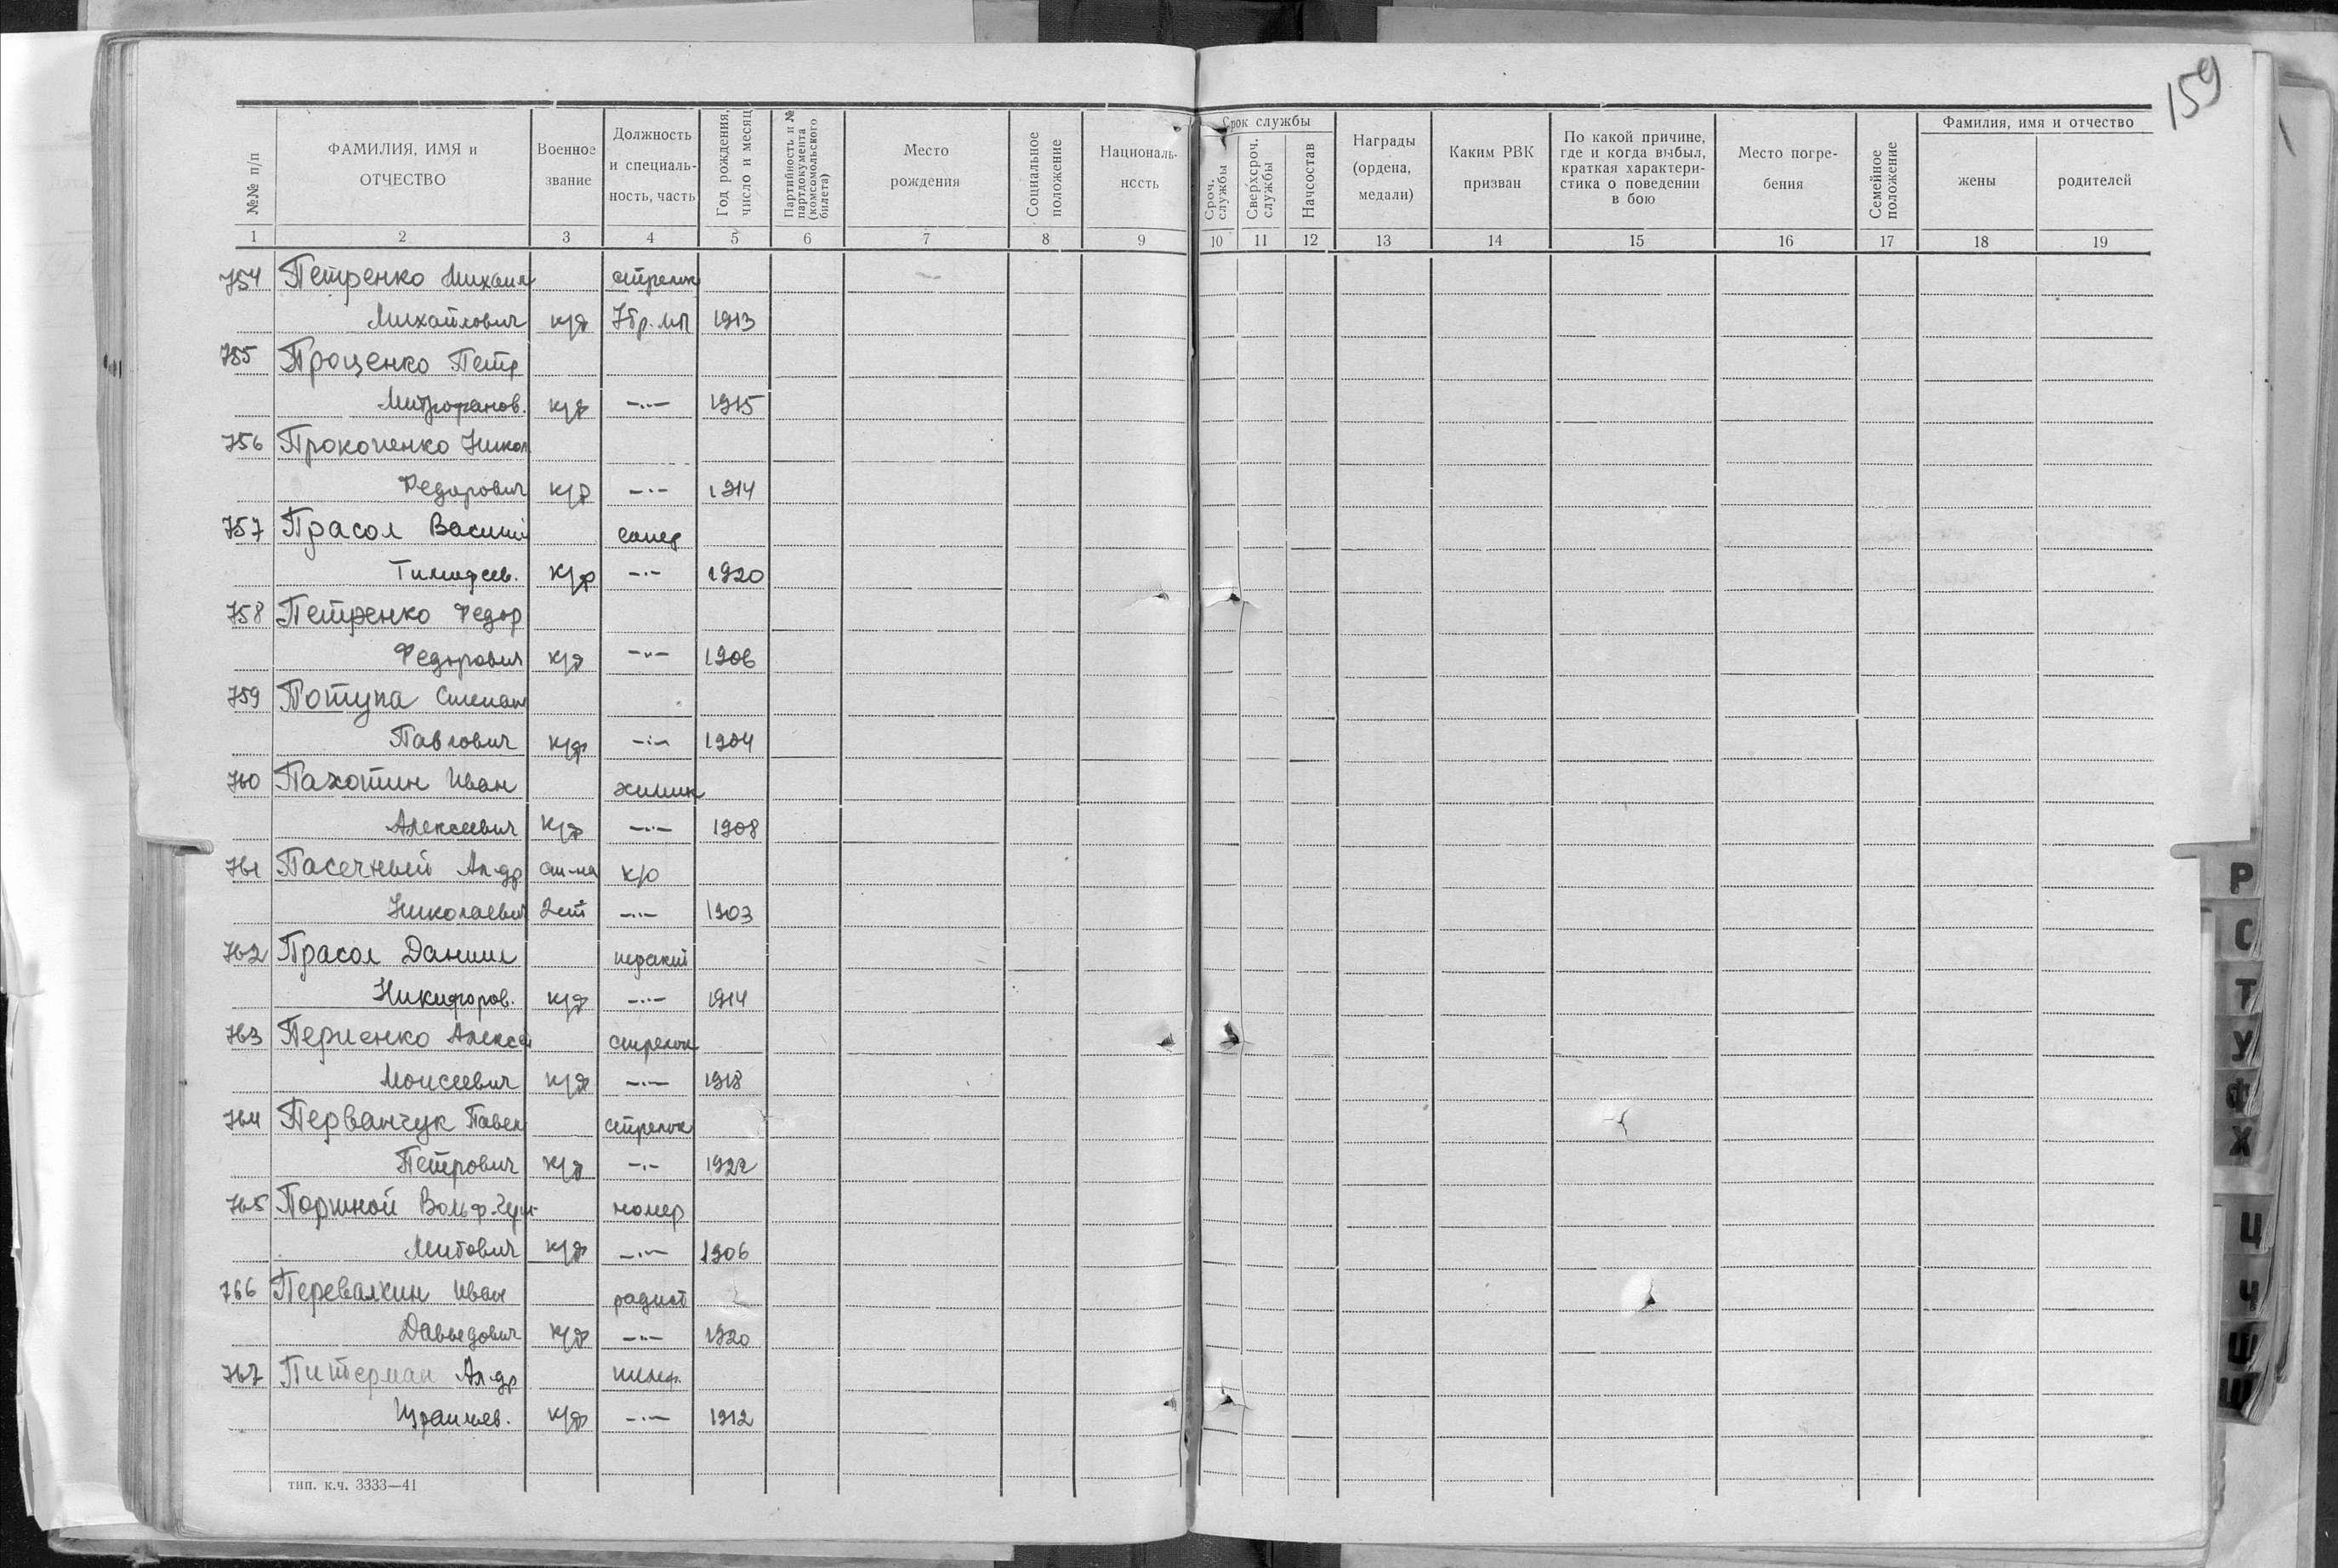 159
№№ п/п
ФАМИЛИЯ, ИМЯ и ОТЧЕСТВО
Военное звание
Должность и специаль-ность, часть
Год рождения, число и месяц
Партийность и № партдокумента (комсомольского билета)
Место рождения
Социальное положение
Националь-ность
Срок службы
Сроч. службы
Сверхсроч. службы
Начсостав
Награды (ордена, медали)
Каким РВК призван
По какой причине, где и когда выбыл, краткая характери-стика о поведении в бою
Место погре-бения
Семейное положение
Фамилия, имя и отчество
жены
родителей
1 2 3 4 5 6 7 8 9 10 11 12 13 14 15 16 17 18 19
754 Петренко Михаил стрелок
Михайлович к/ф 7бр. МП 1913
755 Проценко Петр
Митрофанов. к/ф —„— 1915
756 Прокопенко Никол
Федорович к/ф —„— 1914
757 Прасол Василий сапер
Тимофеев. к/ф —„— 1920
758 Петренко Федор
Федорович к/ф —„— 1906
759 Потупа Степан
Павлович к/ф —„— 1904
760 Пахотин Иван химик
Алексеевич к/ф —„— 1908
761 Пасечный Ал-др ст-на к/о
Николаевич 2ст —„— 1903
762 Прасол Даниил
Никифоров. к/ф —„— 1914
763 Алексей стрелок
Моисеевич к/ф —„— 1918
764 Перванчук Павел стрелок
Петрович к/ф —„— 1922
765 Портной номер
к/ф —„— 1906
766 Перевалкин Иван радист
Давыдович к/ф —„— 1920
767 Питерман Ал-др
Израилев. к/ф —„— 1912
тип. к.ч. 3333—41
Р
С
Т
У
Ф
Х
Ц
Ч
Ш
Щ